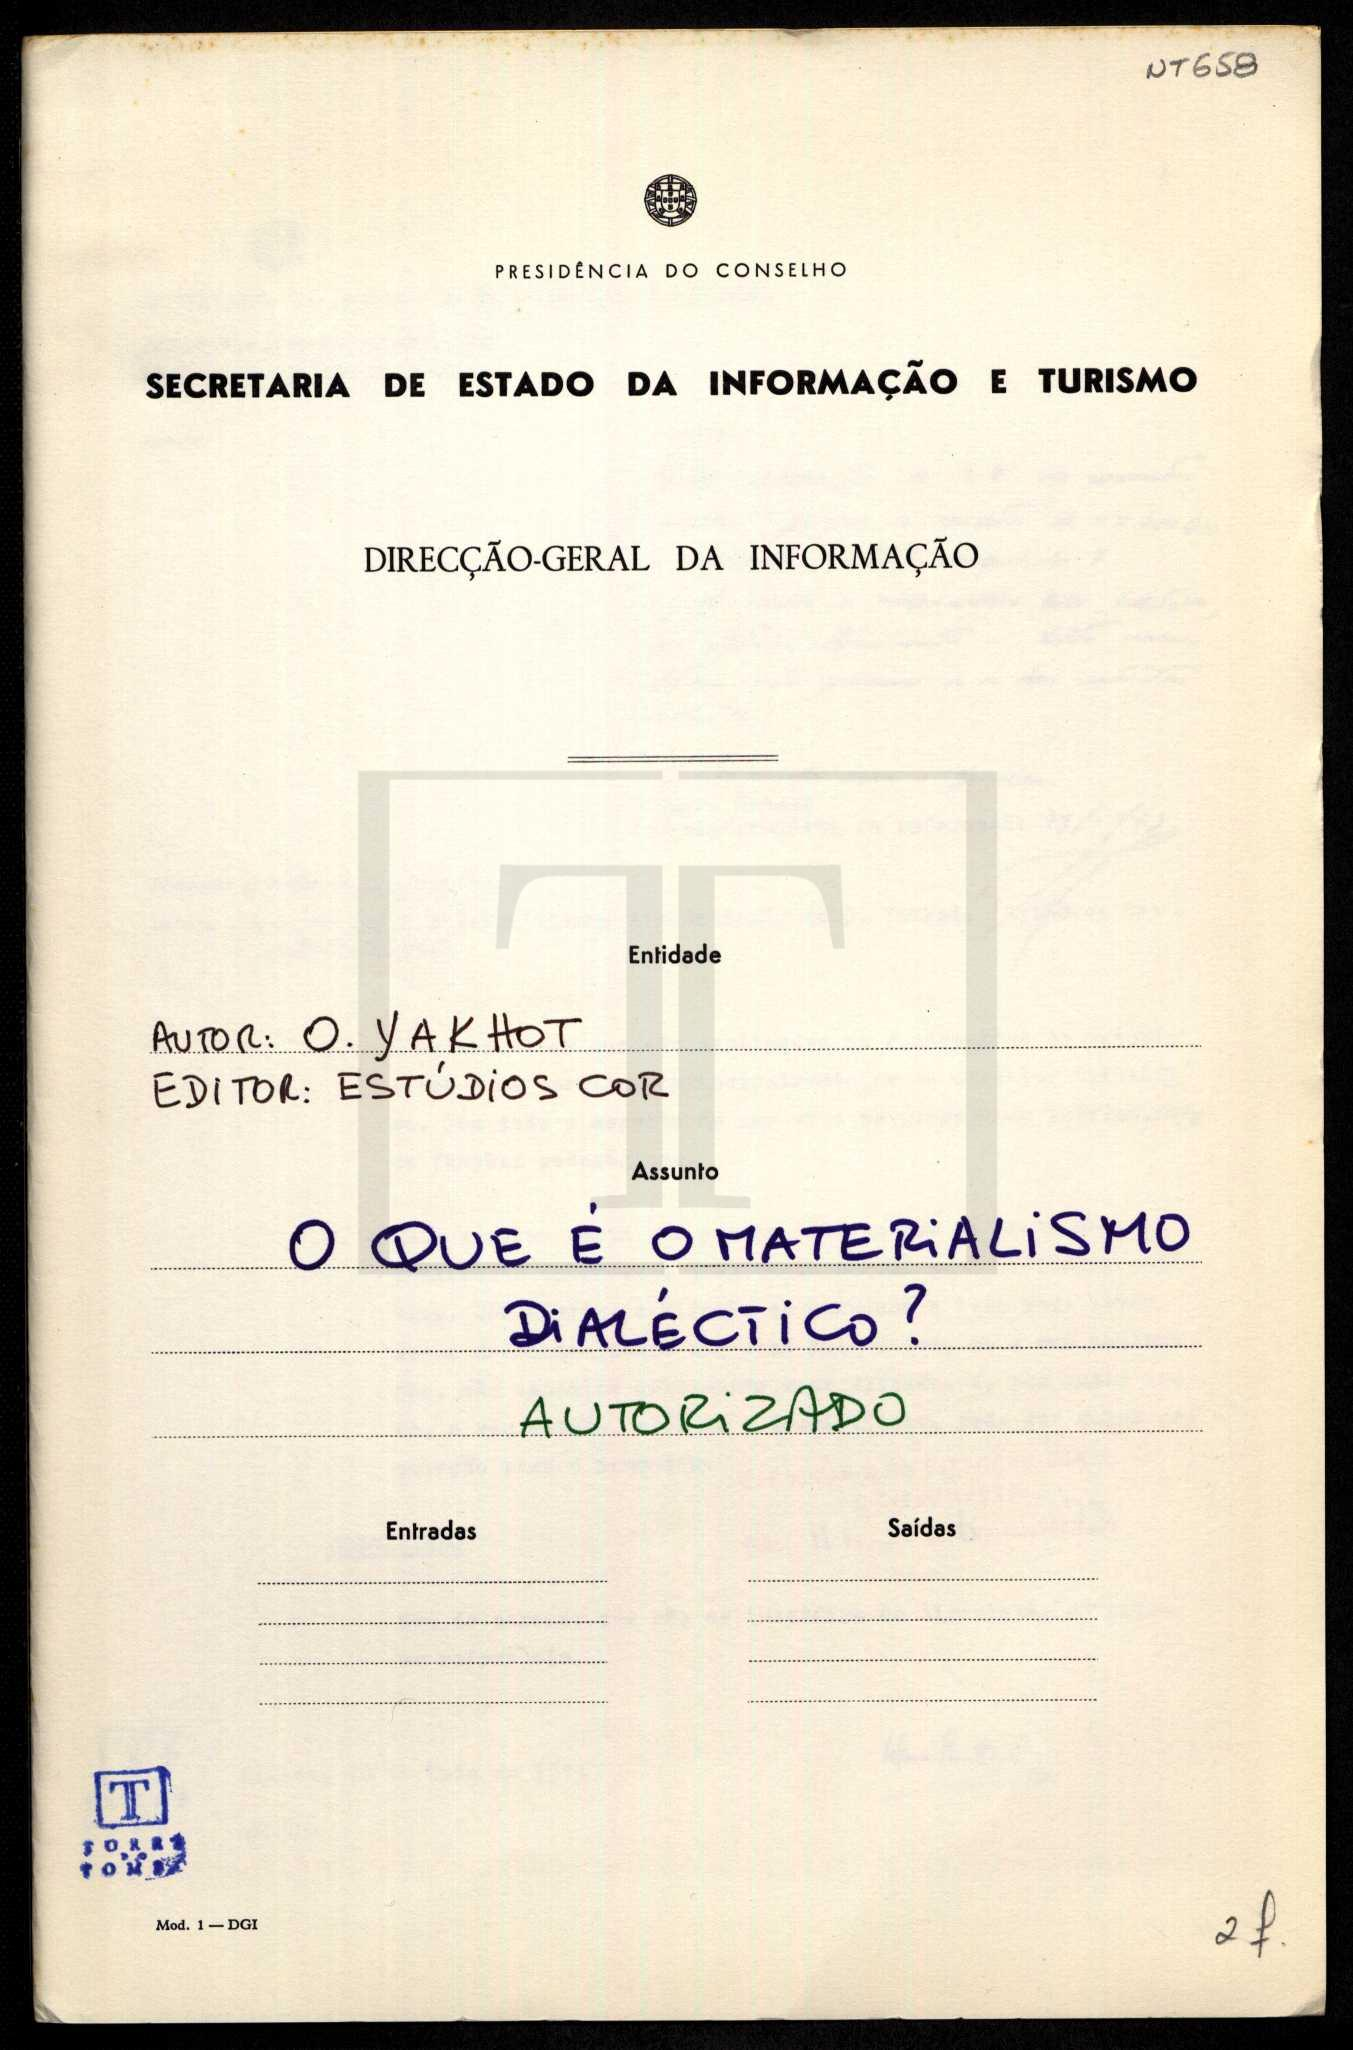 NT658
PRESIDÊNCIA DO CONSELHO
SECRETARIA DE ESTADO DA INFORMAÇÃO E TURISMO
DIRECÇÃO-GERAL DA INFORMAÇÃO
Entidade
AUTOR: O. YAKHOT
EDITOR: ESTÚDIOS COR
Assunto
O QUE É O MATERIALISMO
DIALÉCTICO?
AUTORIZADO
Entradas Saídas
T
TORRE
DO
TOMBO
Mod. 1 — DGI
2 f.